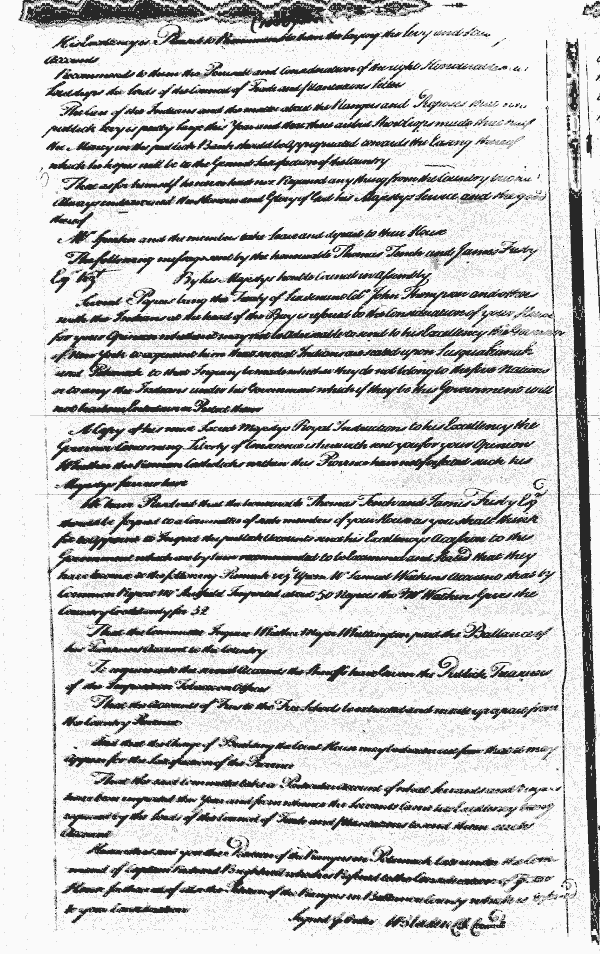 His Excellency is Pleased to Recommend to them the laying the levy and
Accounts
Recommends to them the Perusall and Consideration of the right Honourable
Lordships the Lords of the Council of Trade and plantations letter
The Case of the Indians and the matter about the Rangers and
publick levy is pretty large this Year and
the Money in the publick Bank should be appropriated towards the Easing thereof
which he hopes will be to the Generall Satisfaction of the Country
That as for himself he never had nor Required any thing from the Country
Always endeavoured the Honour and Glory of God his Majestys Service and the good
thereof
Mr Speaker and the members take leave and depart to their House
The following message sent by the honourable Thomas Tench and James Frisby
Esqrs vizt By his Majestys honble Council in Assembly
Severall Papers being the Treaty of Lieutenant Coll John Thompson and others
with the Indians at the head of the Bay is referred to the Consideration of your House
for your Opinion whether it may not be adviseable to send to his Excellency the Governour
of New York to acquaint him that severall Indians are seated upon Susquehannah
and Potomack to that Inquiry be made whether they do not belong to the five Nations
or to any the Indians under his Government which if they do this Government will
not hereon Entertain or Protect them
A Copy of his most Sacred Majestys Royal Instructions to his Excellency the
Governor Concerning Liberty of Conscience is herewith sent you for your Opinion
Whether the Roman Catholicks within this Province have not forfeited such his
Majestys favour here
We have Ordered that the honourable Thomas Tench and James Frisby Esqrs
should be Joyned to a Committee of such members of your House as you shall think
fit to appoint to Inspect the publick Accounts since his Excellencys Accession to this
Government which are by him recommended to be Examined and Stated that they
have become to the following Remark vizt Upon Mr Samuel Watkins Account that by
Common Report Mr Imported about 50 Negroes tho Mr Watkins Gives the
Country Credit only for 32
That the Committee Inquire Whether Major Whittington paid the Ballance of
his Account to the Country
To inquire into the severall Accounts the Sheriffs have given the Publick Treasurers
of the Imposition Tobaccos Offices
That the Accounts of Fees to the Free Schools be extracted and made up apart from
the Country Revenue
And that the Charge of Building the Court House may be drawn out from that it may
appear for the Satisfaction of the Province
That the said Committee take a Particular Account of what Servants and Negroes
have been imported this Year and from whence the Servants came his Excellency being
required by the Lords of the Council of Trade and plantations to send them such
Account
Herewith send you the Petition of the Rangers on Potomack late under the Com
mand of Captain Richard Brightwell which is Referred to the Consideration of your
House further as also the Petition of the Rangers in Baltimore County which is
to your Consideration
Signed p Order W Bladen Cl Council